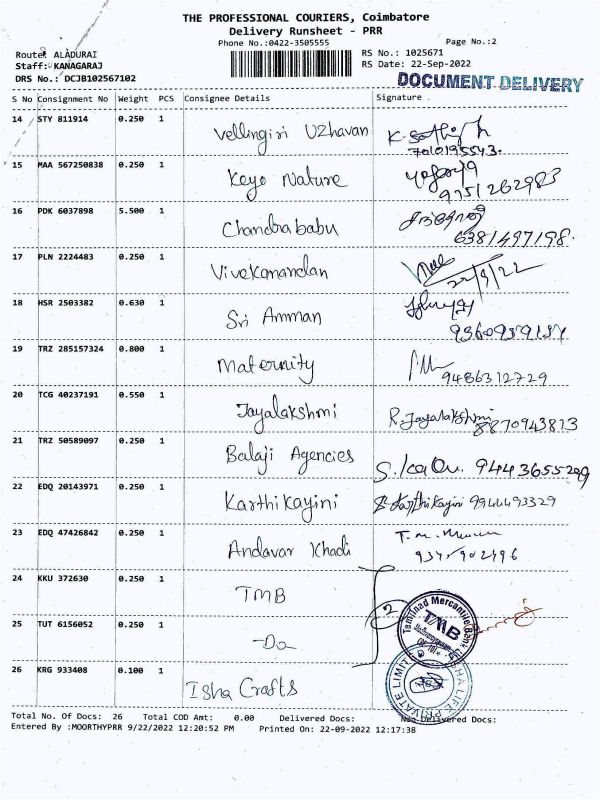 THE PROFESSIONAL COURIERS, Coimbatore
Delivery Runsheet - PRR
Phone No.:0422-3505555
Page No.:2
Route: ALADURAI
RS No.: 1025671
Staff: KANAGARAJ
RS Date: 22-Sep-2022
DRS No.: DCJB102567102
DOCUMENT DELIVERY
S No Consignment No Weight PCS Consignee Details Signature
14 STY 811914 0.250 1 Vellingiri Uzhavan
7010195543.
15 MAA 567250838 0.250 1 Keyo Nature
9751262983
16 PDK 6037898 5.500 1 Chandrababu
6381497198.
17 PLN 2224483 0.250 1 Vivekanandan
22/9/22
18 HSR 2503382 0.630 1 Sri Amman
19 TRZ 285157324 0.800 1 Maternity
9486312729
20 TCG 40237191 0.550 1 Jayalakshmi R. Jayalakshmi
8870943813
21 TRZ 50589097 0.250 1 Balaji Agencies
22 EDQ 20143971 0.250 1 Karthikayini Karthikayini 9944493329
23 EDQ 47426842 0.250 1 Andavar Khadi
24 KKU 372630 0.250 1 TMB
2
Tamilnad Mercantile Bank
TMB
25 TUT 6156052 0.250 1 -Do
26 KRG 933408 0.100 1 Isha Crafts
PRIVATE LIMIT
Total No. Of Docs: 26 Total COD Amt: 0.00 Delivered Docs: Non-Delivered Docs:
Entered By :MOORTHYPRR 9/22/2022 12:20:52 PM Printed On: 22-09-2022 12:17:38